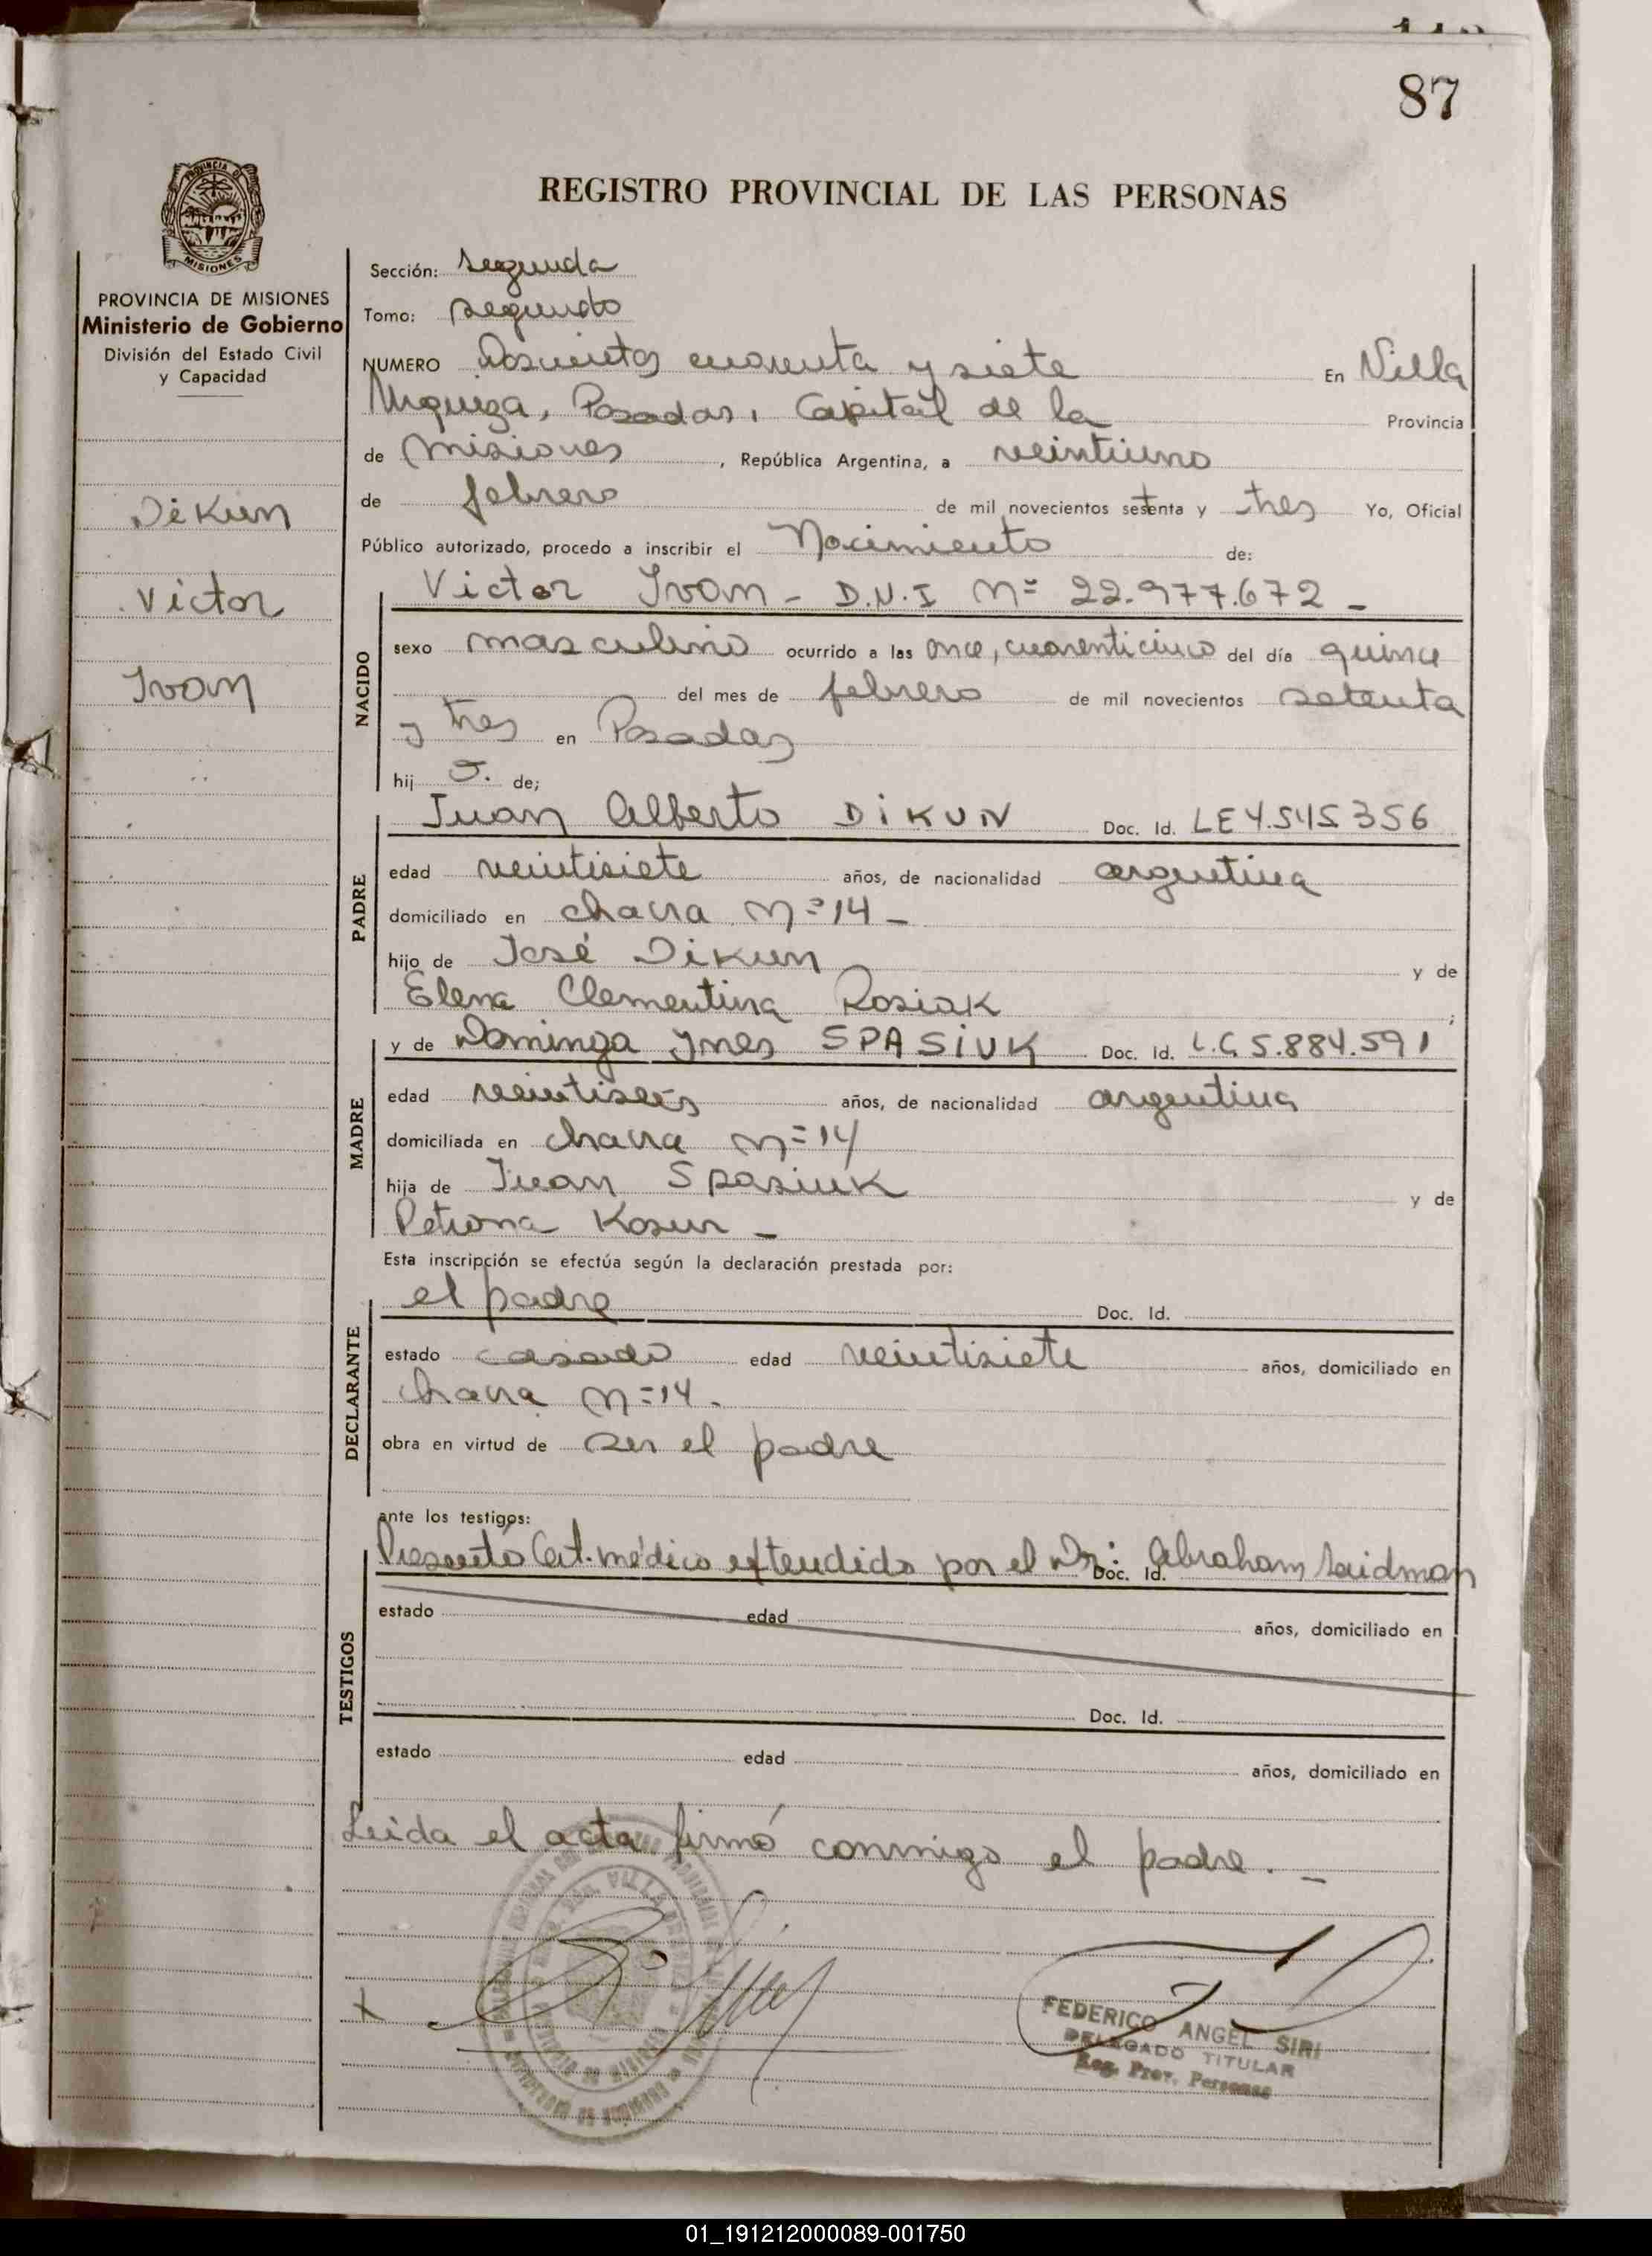 87
PROVINCIA DE MISIONES
REGISTRO PROVINCIAL DE LAS PERSONAS
PROVINCIA DE MISIONES
Ministerio de Gobierno
División del Estado Civil
y Capacidad
Dikun
Victor
Ivan
Sección: segunda
Tomo: segundo
NUMERO Doscientos cuarenta y siete En Villa
Urquiza, Posadas, Capital de la Provincia
de misiones, República Argentina, a veintiuno
de febrero de mil novecientos setenta y tres Yo, Oficial
Público autorizado, procedo a inscribir el Nacimiento de:
NACIDO
Victor Ivan - D.N.I Nº 22.977.672 -
sexo masculino ocurrido a las once, cuarenticinco del día quince
del mes de febrero de mil novecientos setenta
y tres en Posadas
hij o. de;
PADRE
Juan Alberto DIKUN Doc. Id. LE 4.545356
edad veintisiete años, de nacionalidad argentina
domiciliado en chacra Nº 14 -
hijo de José Dikun y de
Elena Clementina Rosiak ;
MADRE
y de Dominga Ynes SPASIUK Doc. Id. L.C 5.884.591
edad veintiseis años, de nacionalidad argentina
domiciliada en chacra Nº 14
hija de Juan Spasiuk y de
Petrona Kosur -
Esta inscripción se efectúa según la declaración prestada por:
DECLARANTE
el padre Doc. Id.
estado casado edad veintisiete años, domiciliado en
chacra Nº 14.
obra en virtud de ser el padre
ante los testigos:
TESTIGOS
Presentó Cert. médico extendido por el Dr: Abraham Saidman Doc. Id.
estado edad años, domiciliado en
Doc. Id.
estado edad años, domiciliado en
Leida el acta firmó conmigo el padre. -
FEDERICO ANGEL SIRI
DELEGADO TITULAR
Reg. Prov. Personas
01_191212000089-001750